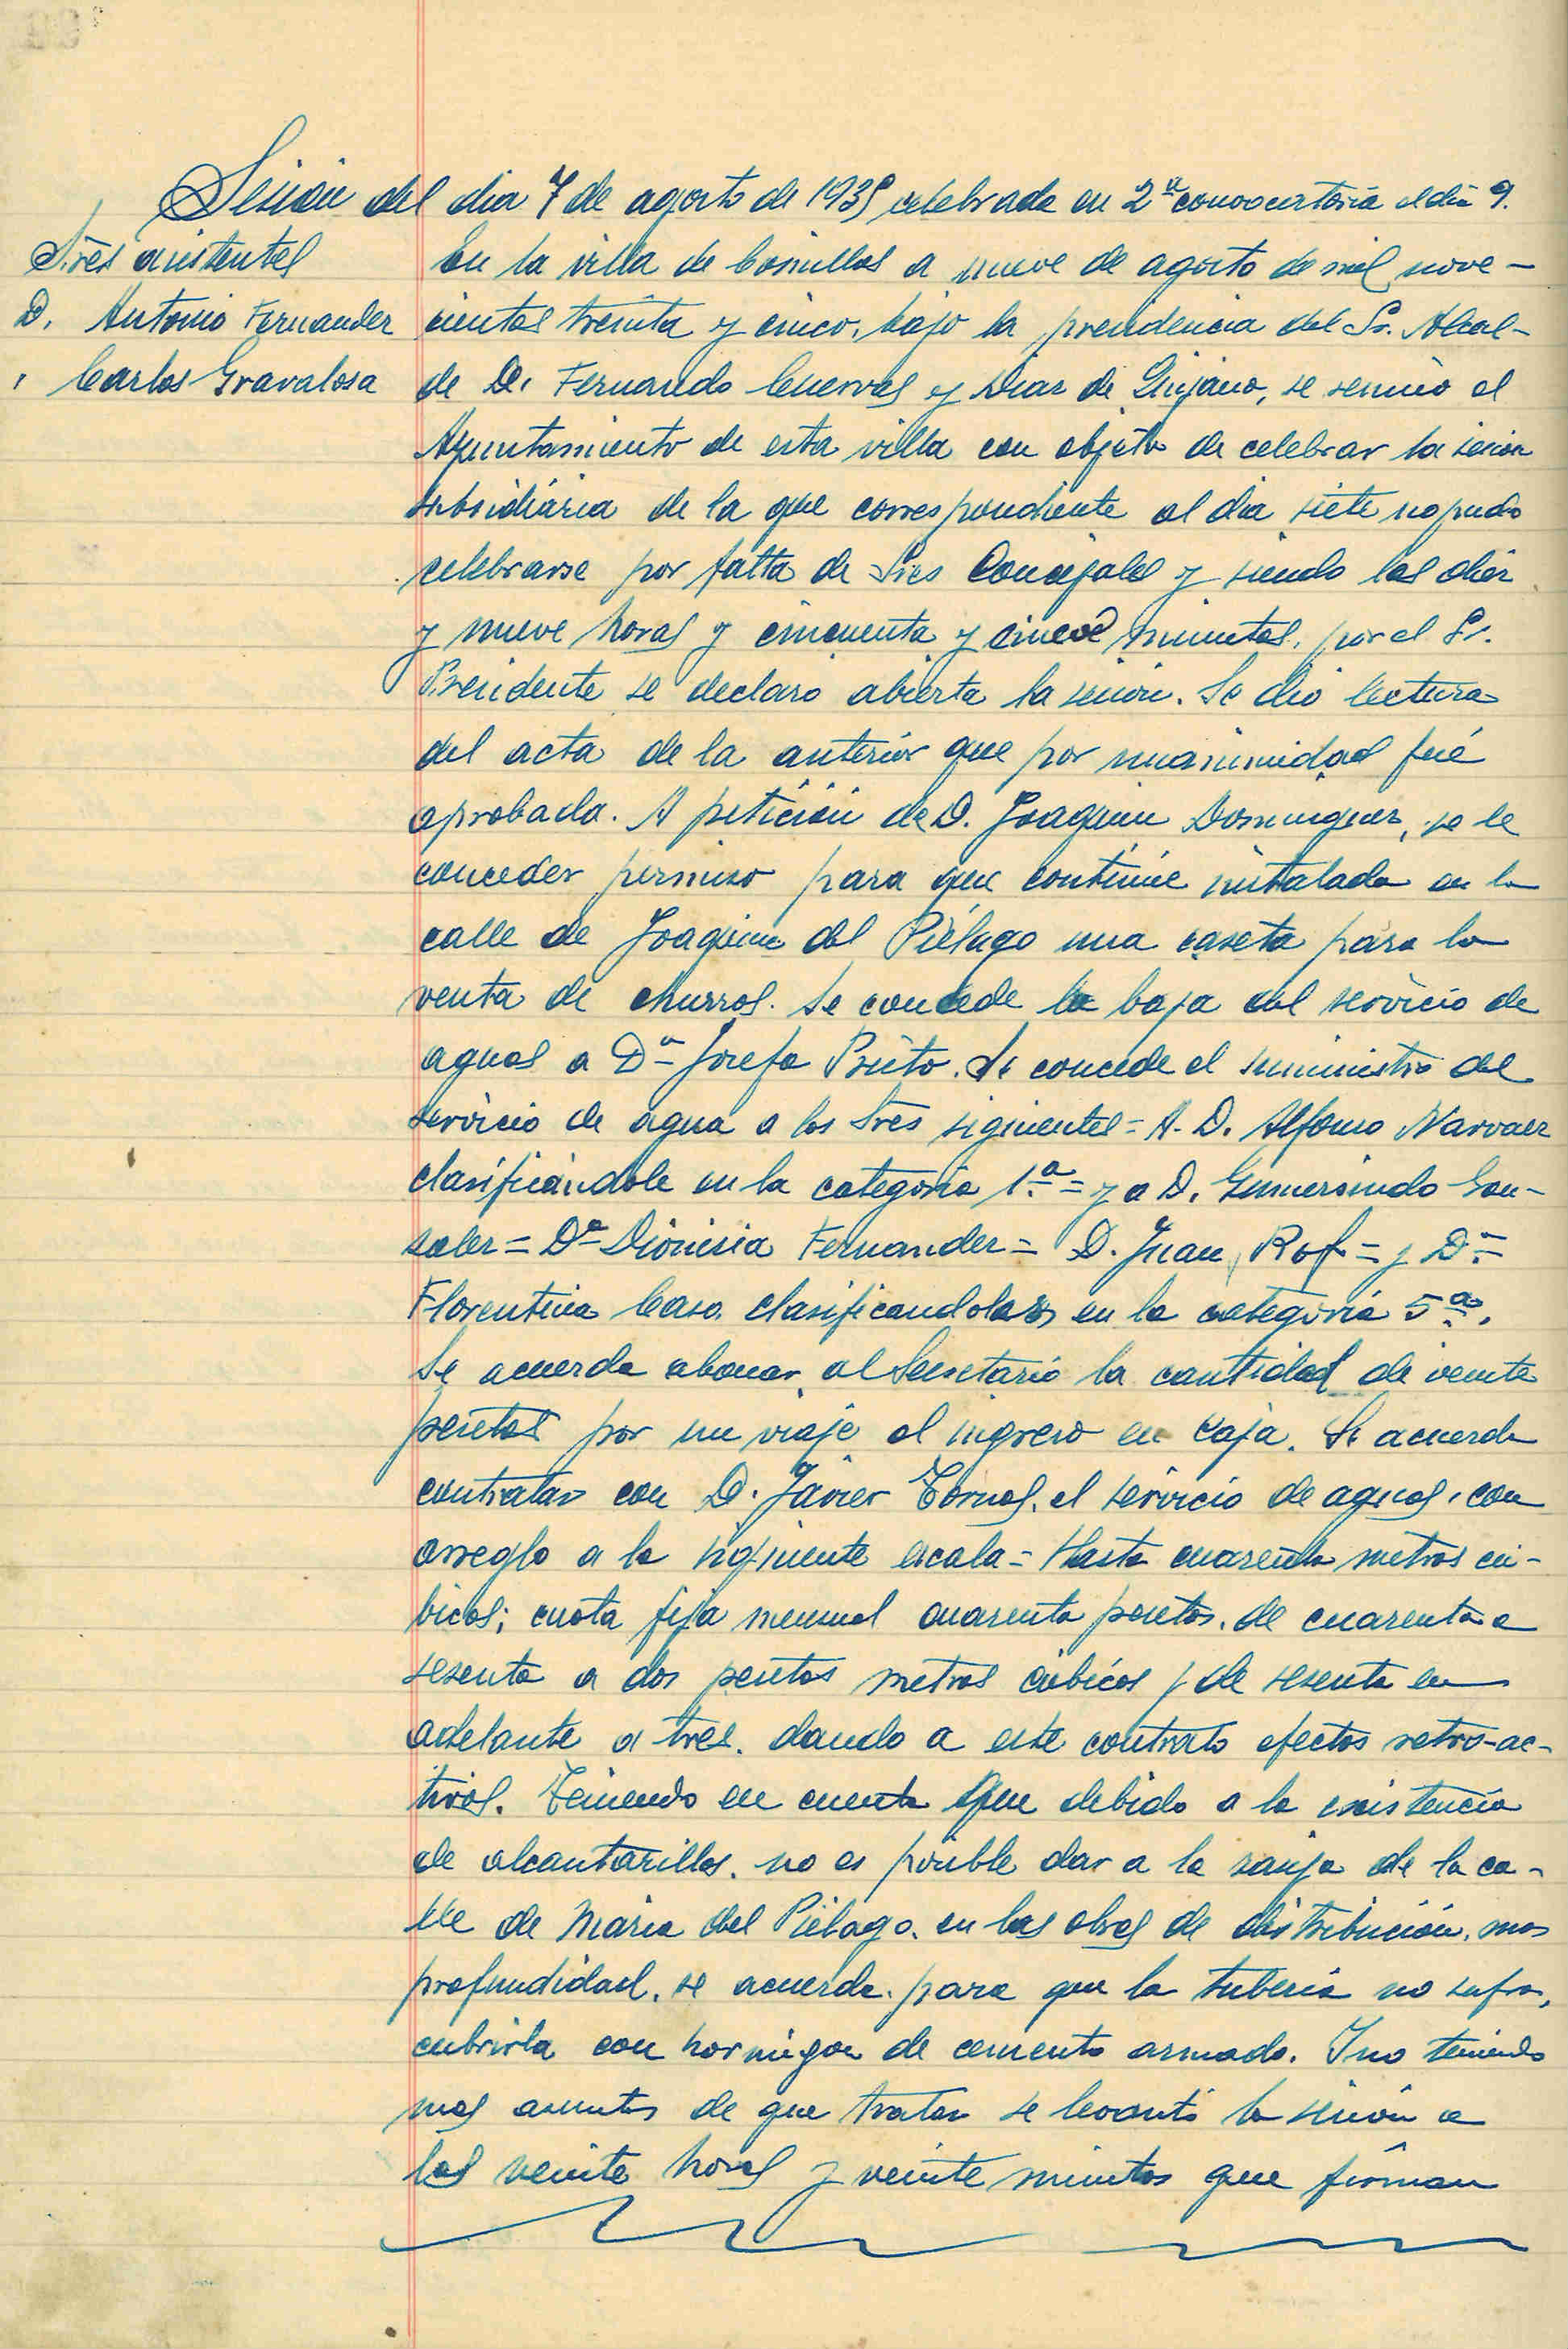 Sesión del dia 7 de agosto de 1935 celebrada en 2ª convocatoria el dia 9.
Sres asistentes
D. Antonio Fernandez
" Carlos Gravalosa
En la villa de Comillas a nueve de agosto de mil nove-
cientos treinta y cinco, bajo la presidencia del Sr. Alcal-
de D. Fernando Cuevas y Diaz de Quijano, se reunió el
Ayuntamiento de esta villa con objeto de celebrar la sesion
subsidiaria de la que correspondiente al dia siete no pudo
celebrarse por falta de Sres Concejales y siendo las diez
y nueve horas y cincuenta y cinco minutos, por el Sr.
Presidente se declaro abierta la sesión. Se dio lectura
del acta de la anterior que por unanimidad fué
aprobada. A petición de D. Joaquin Dominguez, se le
conceder permiso para que continúe instalada en la
calle de Joaquin del Piélago una caseta para la
venta de churros. Se concede la baja del servicio de
aguas a Dª Josefa Prieto. Se concede el suministro del
servicio de agua a los Sres siguientes = A. D. Alfonso Narvaez
clasificándole en la categoria 1.ª = y a D. Gumersindo Gon-
zalez = Dª Dionisia Fernandez = D. Juan Rof = y Dª
Florentina Caso, clasificandolos en la categoria 5ª.
Se acuerda abonar al Secretario la cantidad de veinte
pesetas por un viaje al ingreso en Caja. Se acuerda
contratar con D. Javier Tornos, el servicio de aguas, con
arreglo a la siguiente escala = Hasta cuarenta metros cú-
bicos; cuota fija mensual cuarenta pesetas, de cuarenta a
sesenta a dos pesetas metros cúbicos y de sesenta en
adelante a tres. dando a este contrato efectos retro-ac-
tivos. Teniendo en cuenta que debido a la existencia
de alcantarillas, no es posible dar a la zanja de la ca-
lle de Maria del Piélago, en las obras de distribución, mas
profundidad, se acuerda, para que la tuberia no sufra,
cubrirla con hormigon de cemento armado. Y no teniendo
mas asuntos de que tratar se levantó la sesión a
las veinte horas y veinte minutos que firman